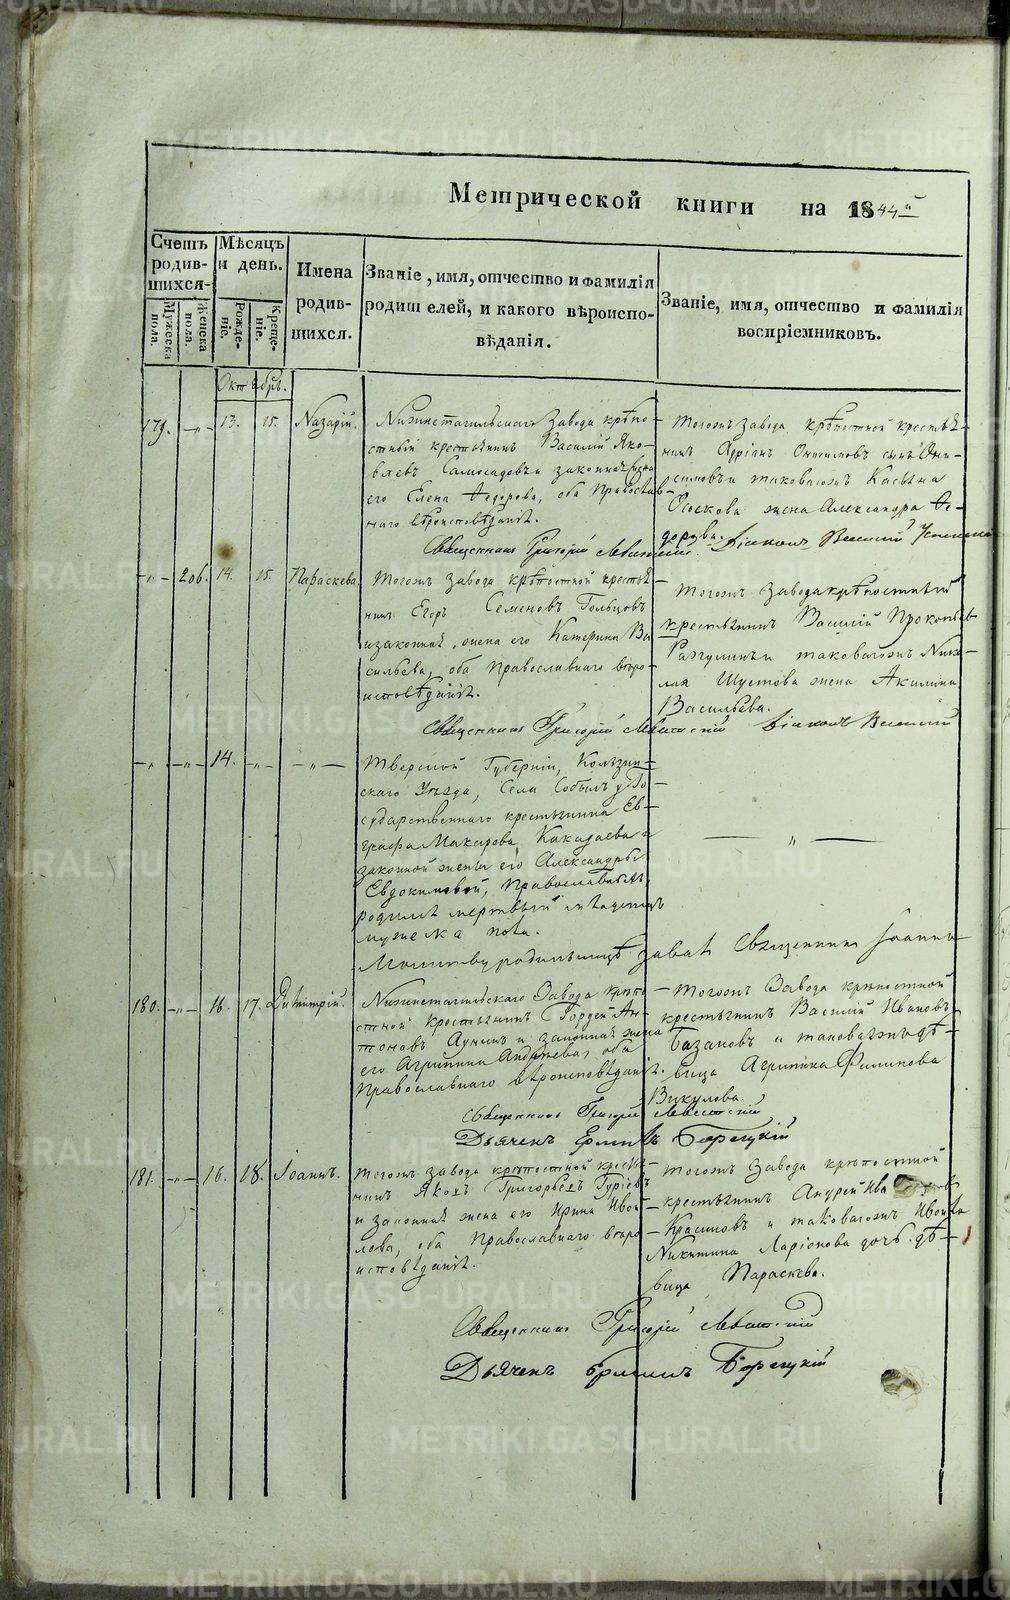 METRIKI.GASO-URAL.RU
Метрической книги на 1844й
Счетъ родившихся.
Мужеска пола.
Женска пола.
Мѣсяцъ и день.
Рожденіе.
Крещеніе.
Имена родившихся.
Званіе, имя, отчество и фамилія родителей, и какого вѣроисповѣданія.
Званіе, имя, отчество и фамилія воспріемниковъ.
Октябрь.
179. 13. 15. Назарій.
Нижнетагильскаго Завода крѣпо-
стный крестьянинъ Василій Яко-
влевъ Самосадовъ и законная жена
его Елена Федорова, оба Православ-
наго вѣроисповѣданія.
Тогожъ завода крѣпостной крестья-
нинъ Адріанъ Онисимовъ сынъ Они-
симовъ и таковагожъ Касьяна
Оскова жена Александра Ѳе-
дорова.
Священникъ Григорій Діаконъ Василій
206. 14. 15. Параскева.
Тогожъ завода крѣпостной крестья
нинъ Егоръ Семеновъ Гольцовъ
и законная жена его Катерина Ва
сильева, оба Православнаго вѣро-
исповѣданія.
Тогожъ завода крѣпостный
крестьянинъ Василій Прокопьев
Разгулинъ и таковагожъ Нико-
лая Шустова жена Акилина
Васильева.
Священникъ Григорій Діаконъ Василій
14.
Тверской Губерніи, Колязин-
скаго Уѣзда, Села Го-
сударственнаго крестьянина Ев-
графа Макарова и
законной жены его Александры
Евдокимовой, Православныхъ,
родился мертвый младенецъ
мужеска пола.
Молитву родильницѣ давалъ Священникъ Іоаннъ
180. 16. 17. Димитрій.
Нижнетагильскаго Завода крѣпо
стной крестьянинъ Гордей Ан-
тоновъ и законная жена
его Агрипина Андреева, оба
Православнаго вѣроисповѣданія.
Тогожъ Завода крѣпостной
крестьянинъ Василій Ивановъ
Базановъ и таковагожъ дѣ-
вица Агрипина Филипова
Викулова.
Священникъ Григорій
Дьячекъ Ермилъ Борецкій
181. 16. 18. Іоаннъ.
Тогожъ завода крѣпостной кресть-
нинъ Яковъ Григорьевъ Гурьевъ
и законная жена его Ирина Ивой
лова, оба Православнаго вѣро
исповѣданія.
Тогожъ завода крѣпостной
крестьянинъ Андрей
Красиковъ и таковагожъ
Никитина Ларіонова дочь дѣ-
вица Параскева.
Священникъ Григорій
Дьячекъ Ермилъ Борецкій